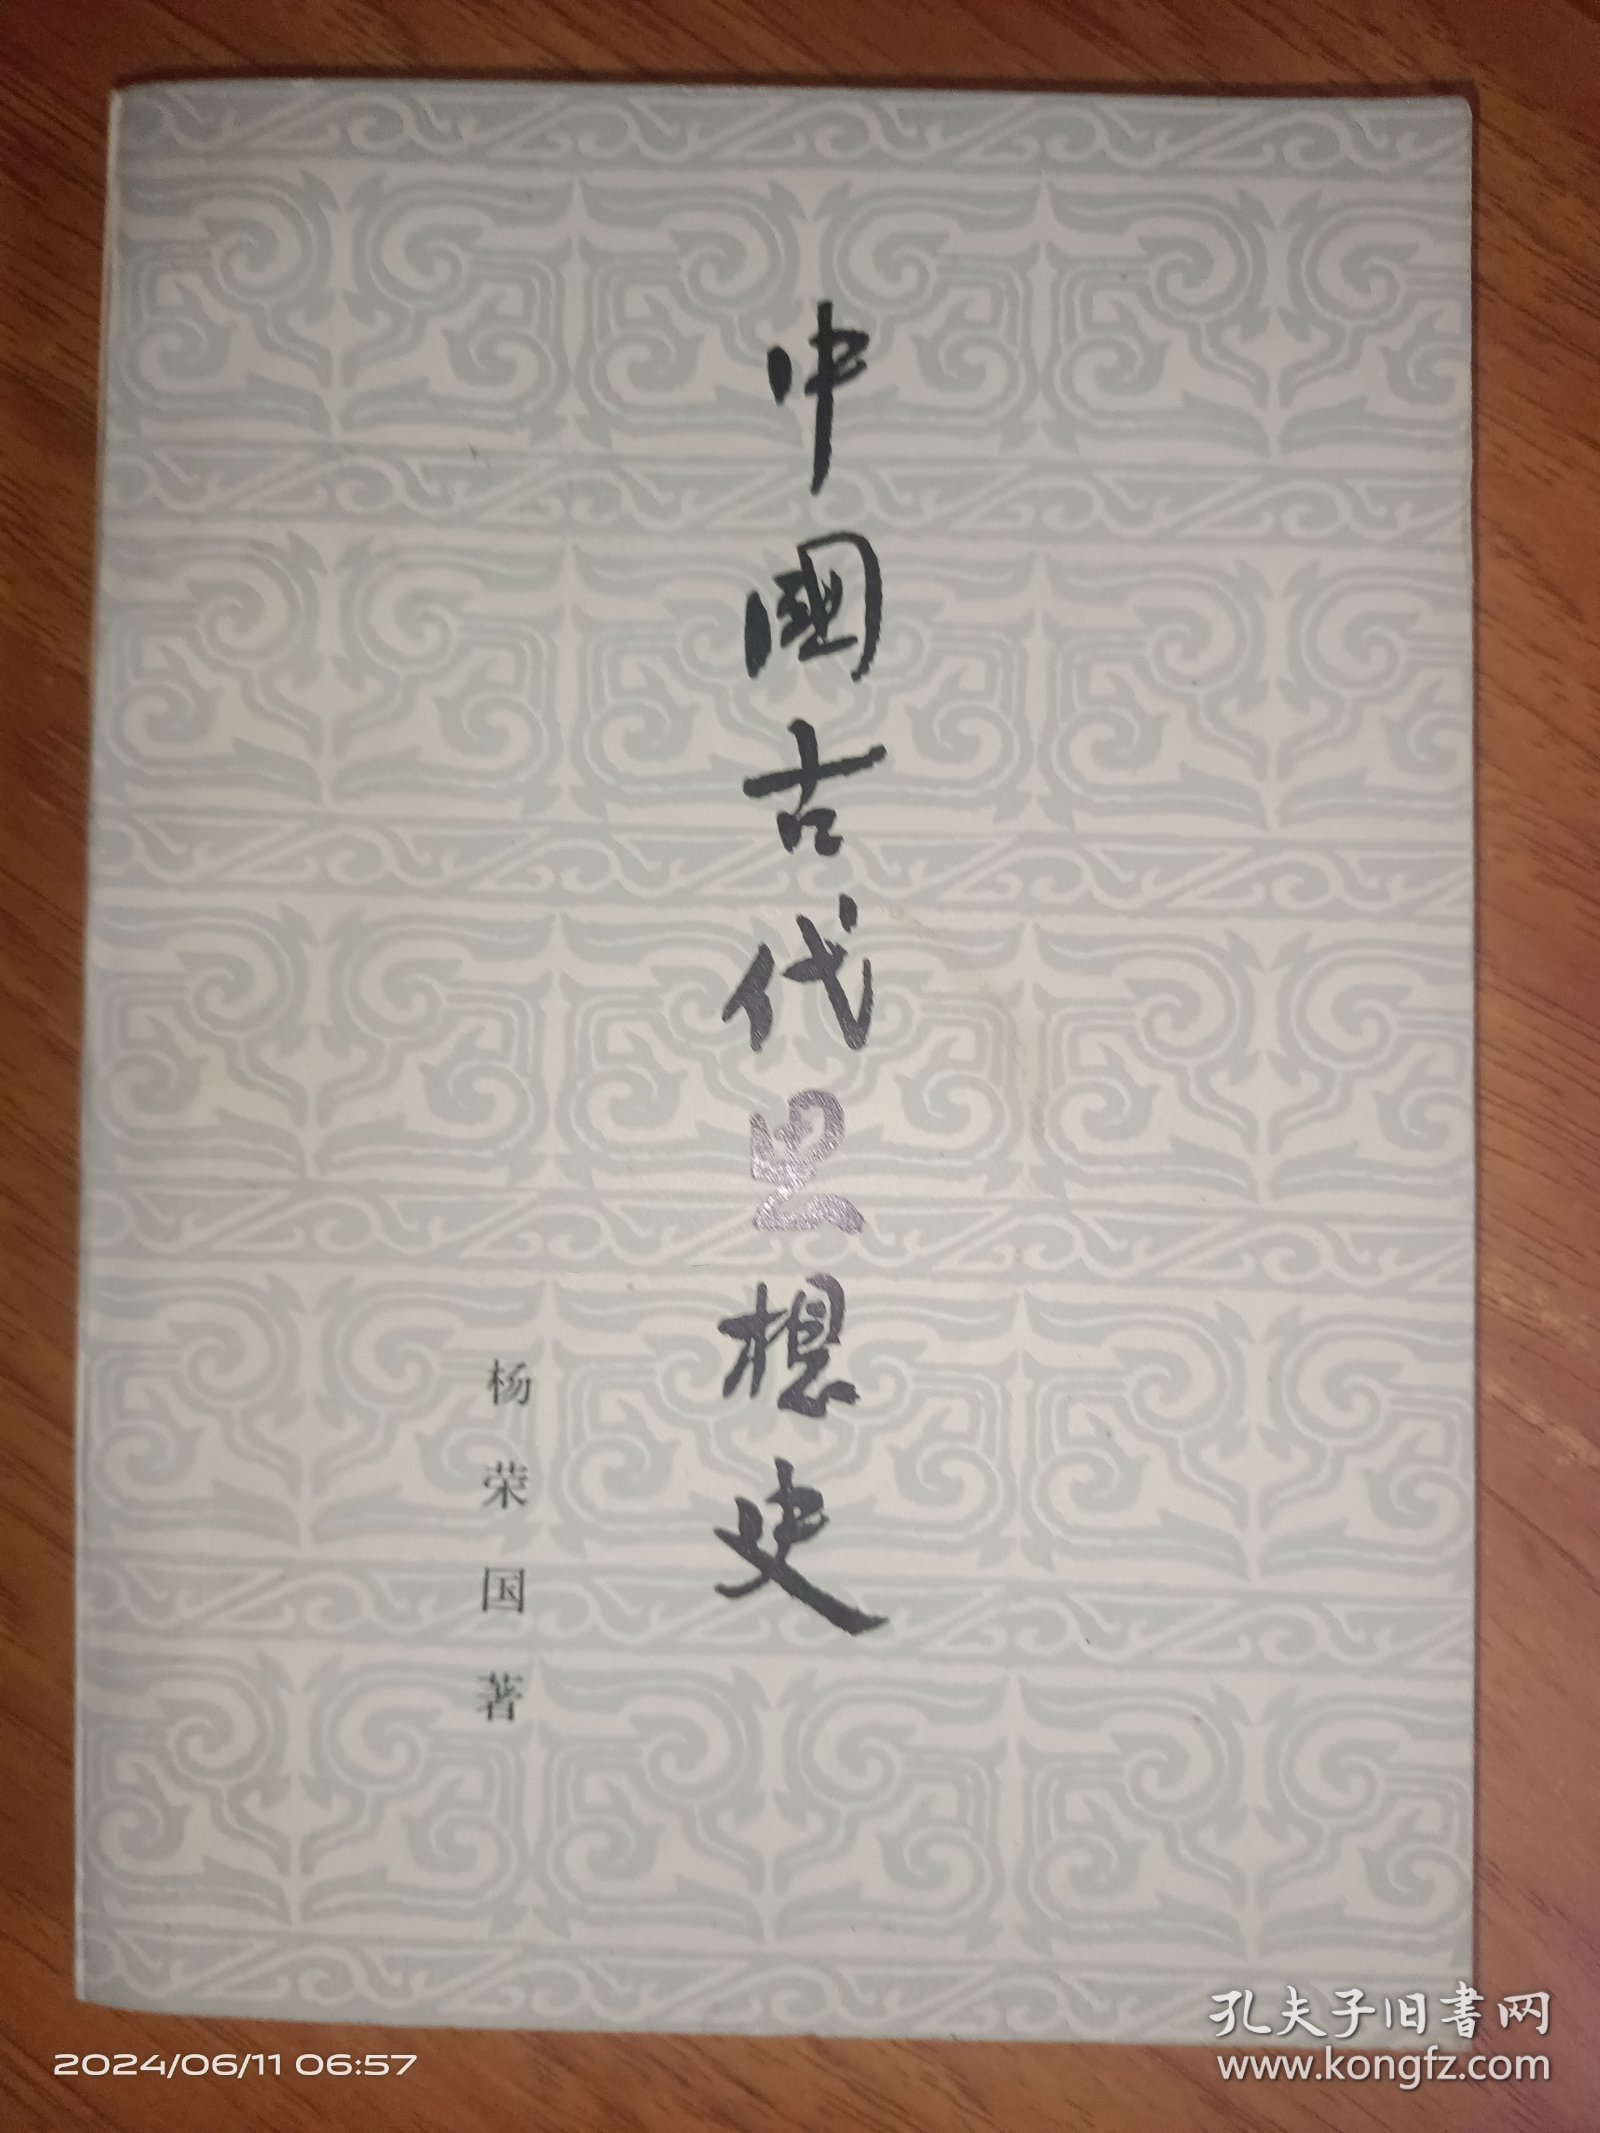 中國古代思想史
杨荣国著
孔夫子旧书网
2024/06/11 06:57
www.kongfz.com